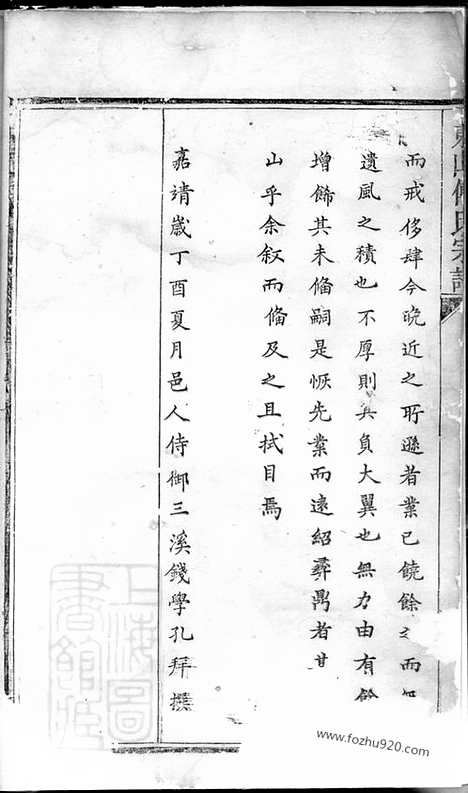 東山傅氏宗譜
而戒侈肆今晚近之所遜者業已饒餘之而
遺風之積也不厚則其負大翼也無力由有餘
增飾其未俻嗣是恢先業而遠紹彞鼎者甘
山乎余叙而俻及之且拭目焉
嘉靖歲丁酉夏月邑人侍御三溪錢學孔拜撰
上海圖書館藏
www.fozhu920.com